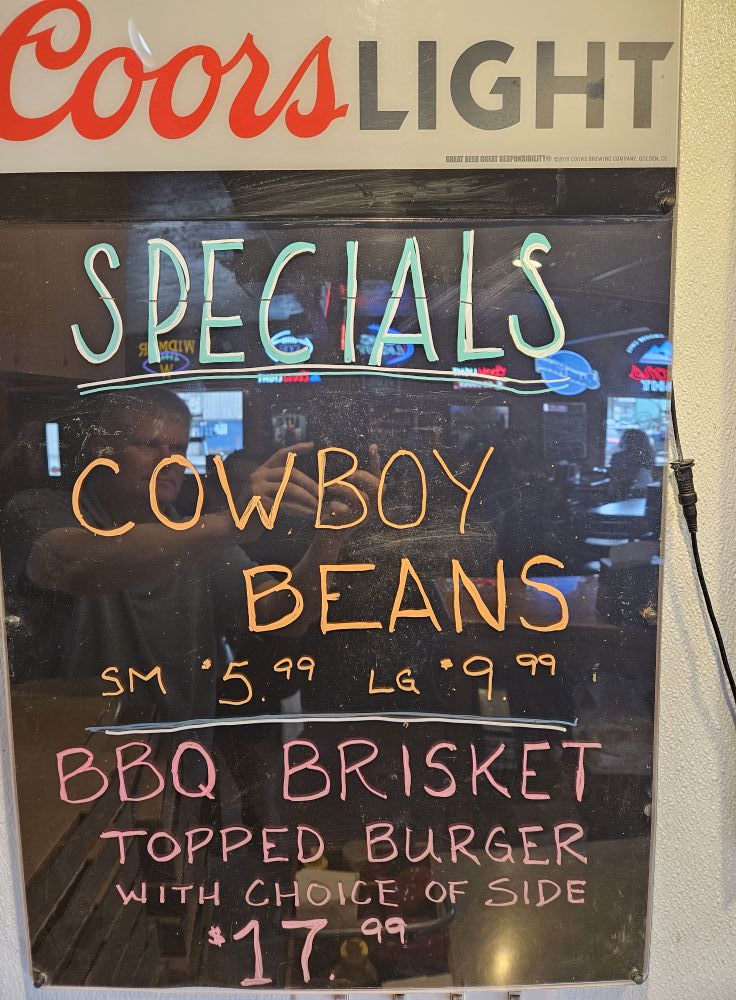 Coors LIGHT
GREAT BEER GREAT RESPONSIBILITY® ©2018 COORS BREWING COMPANY, GOLDEN, CO
SPECIALS
COWBOY
BEANS
SM $5.99 LG $9.99
BBQ BRISKET
TOPPED BURGER
WITH CHOICE OF SIDE
$17.99